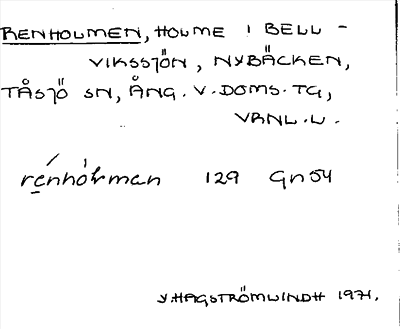 RENHOLMEN, HOLME I BELL-
VIKSSJÖN, NYBÄCKEN,
TÅSJÖ SN, ÅNG. V. DOMS. TG,
VRNL. L.
rénhólman 129 Gn 54
Y. HAGSTRÖM LINDH 1971.